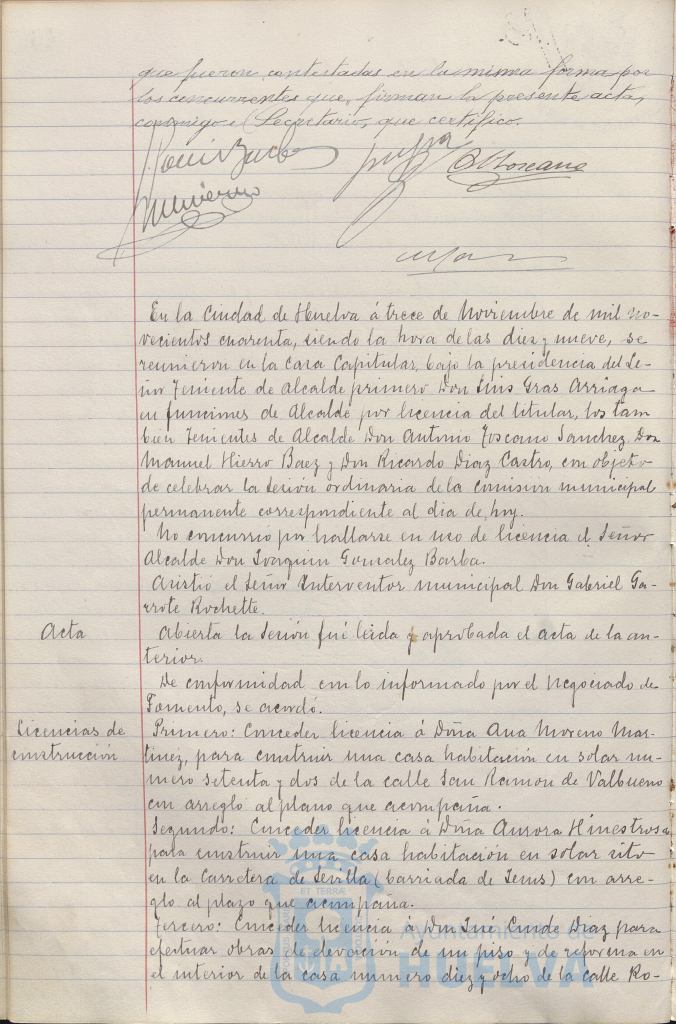 que fueron contestadas en la misma forma por
los concurrentes que, firman la presente acta,
conmigo el Secretario, que certifico.
A Toscano
En la Ciudad de Huelva á trece de Noviembre de mil no-
vecientos cuarenta, siendo la hora de las diez y nueve, se
reunieron en la Casa Capitular, bajo la presidencia del Se-
ñor Teniente de Alcalde primero Don Luis Gras Arriaga
en funciones de Alcalde por licencia del titular, los tam
bien Tenientes de Alcalde Don Antonio Toscano Sanchez, Don
Manuel Hierro Baez y Don Ricardo Diaz Castro, con objeto
de celebrar la sesión ordinaria de la comision municipal
permanente correspondiente al dia de hoy.
No concurrió por hallarse en uso de licencia el Señor
Alcalde Don Joaquin Gonzalez Barba.
Asistió el Señor Interventor municipal Don Gabriel Ga-
rrote Rochette.
Acta
Abierta la sesión fué leida y aprobada el acta de la an-
terior.
De conformidad con lo informado por el Negociado de
Fomento, se acordó.
Licencias de
construcción
Primero: Conceder licencia á Doña Ana Moreno Mar-
tinez, para construir una casa habitación en solar nu-
mero setenta y dos de la calle San Ramon de Valbueno
con arreglo al plano que acompaña.
Segundo: Conceder licencia á Doña Aurora Hinestrosa
para construir una casa habitación en solar sito
en la Carretera de Sevilla (barriada de Jesus) con arre-
glo al plazo que acompaña.
Tercero: Conceder licencia á Don José Conde Diaz para
efectuar obras de elevación de un piso y de reforma en
el interior de la casa numero diez y ocho de la calle Ro-
Ayuntamiento de
HUELVA